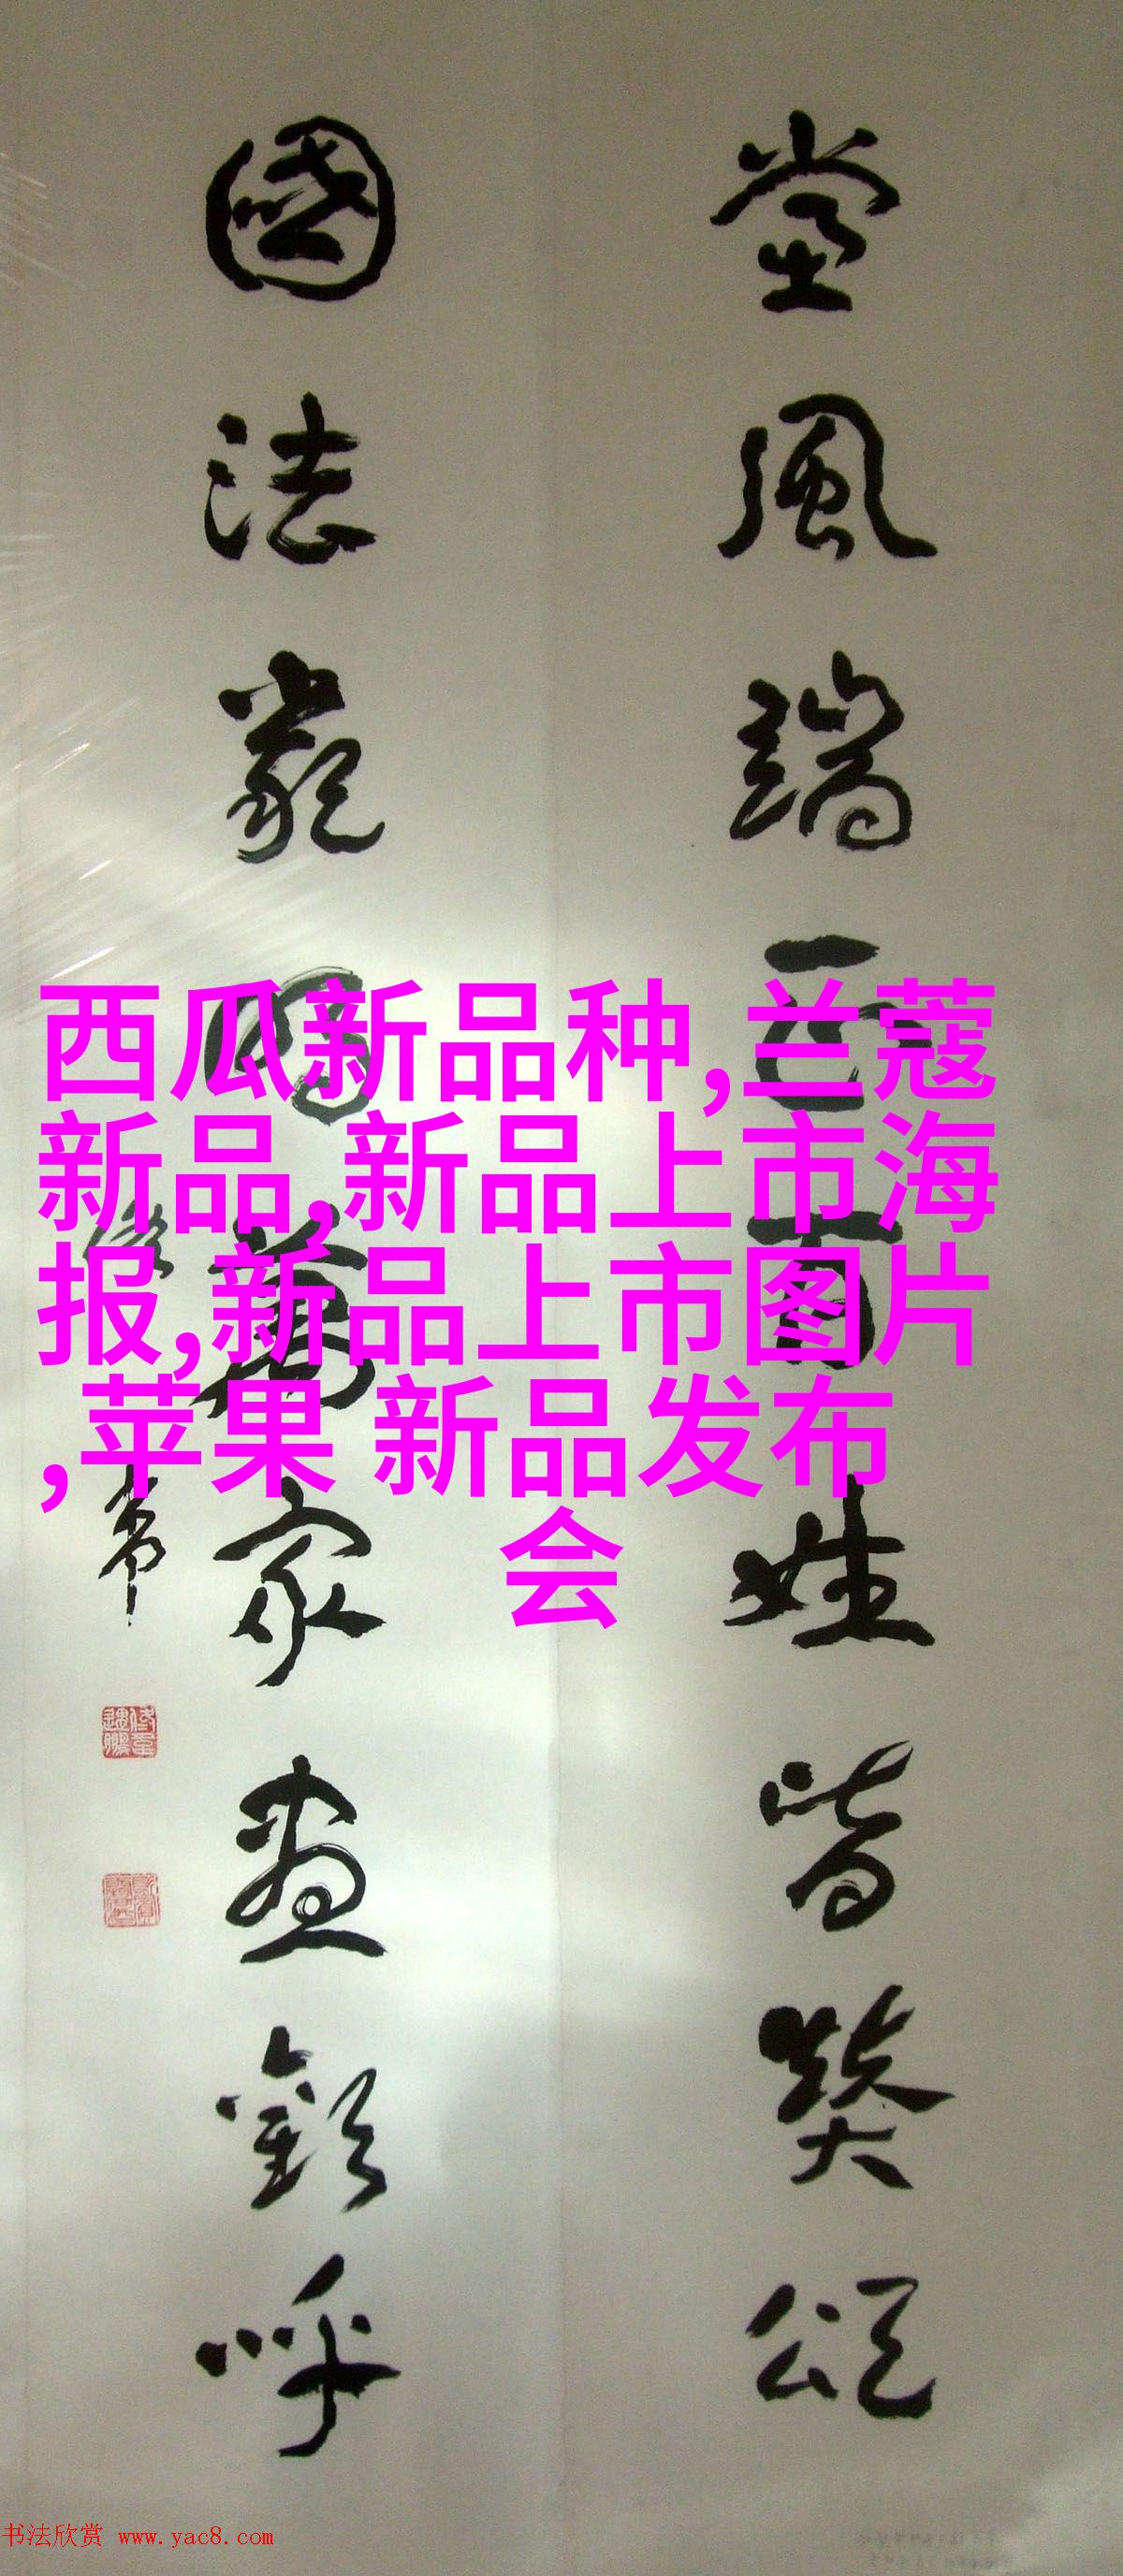 堂風端正百姓皆奬頌
國法嚴明萬家盡歡呼
西瓜新品种,兰蔻
新品,新品上市海
报,新品上市图片
,苹果 新品发布
会
书法欣赏 www.yac8.com